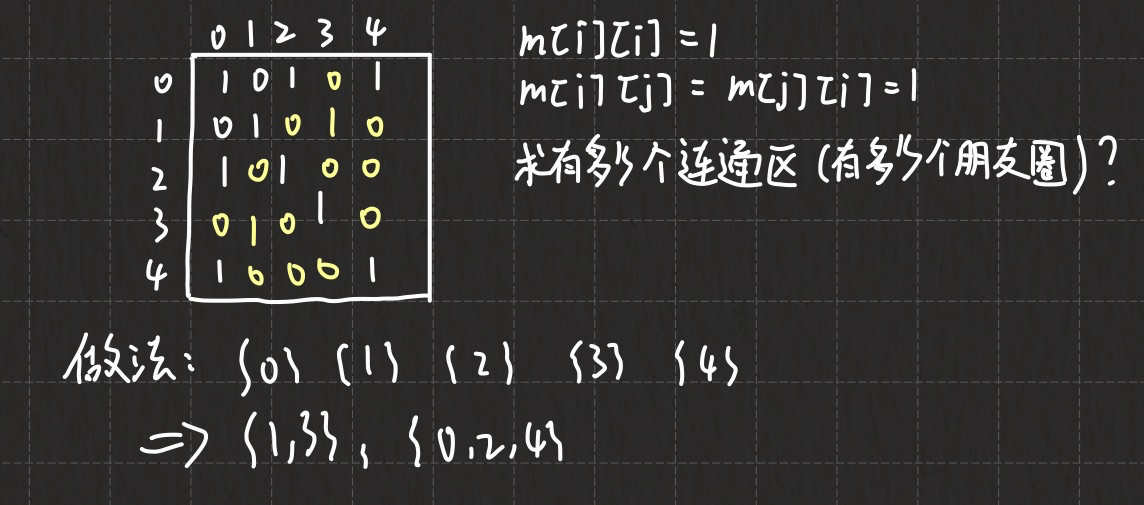 0 1 2 3 4
0 1 0 1 0 1
1 0 1 0 1 0
2 1 0 1 0 0
3 0 1 0 1 0
4 1 0 0 0 1
m[i][i] = 1
m[i][j] = m[j][i] = 1
求有多少个连通区 (有多少个朋友圈)?
做法: {0} {1} {2} {3} {4}
=> {1,3}, {0,2,4}